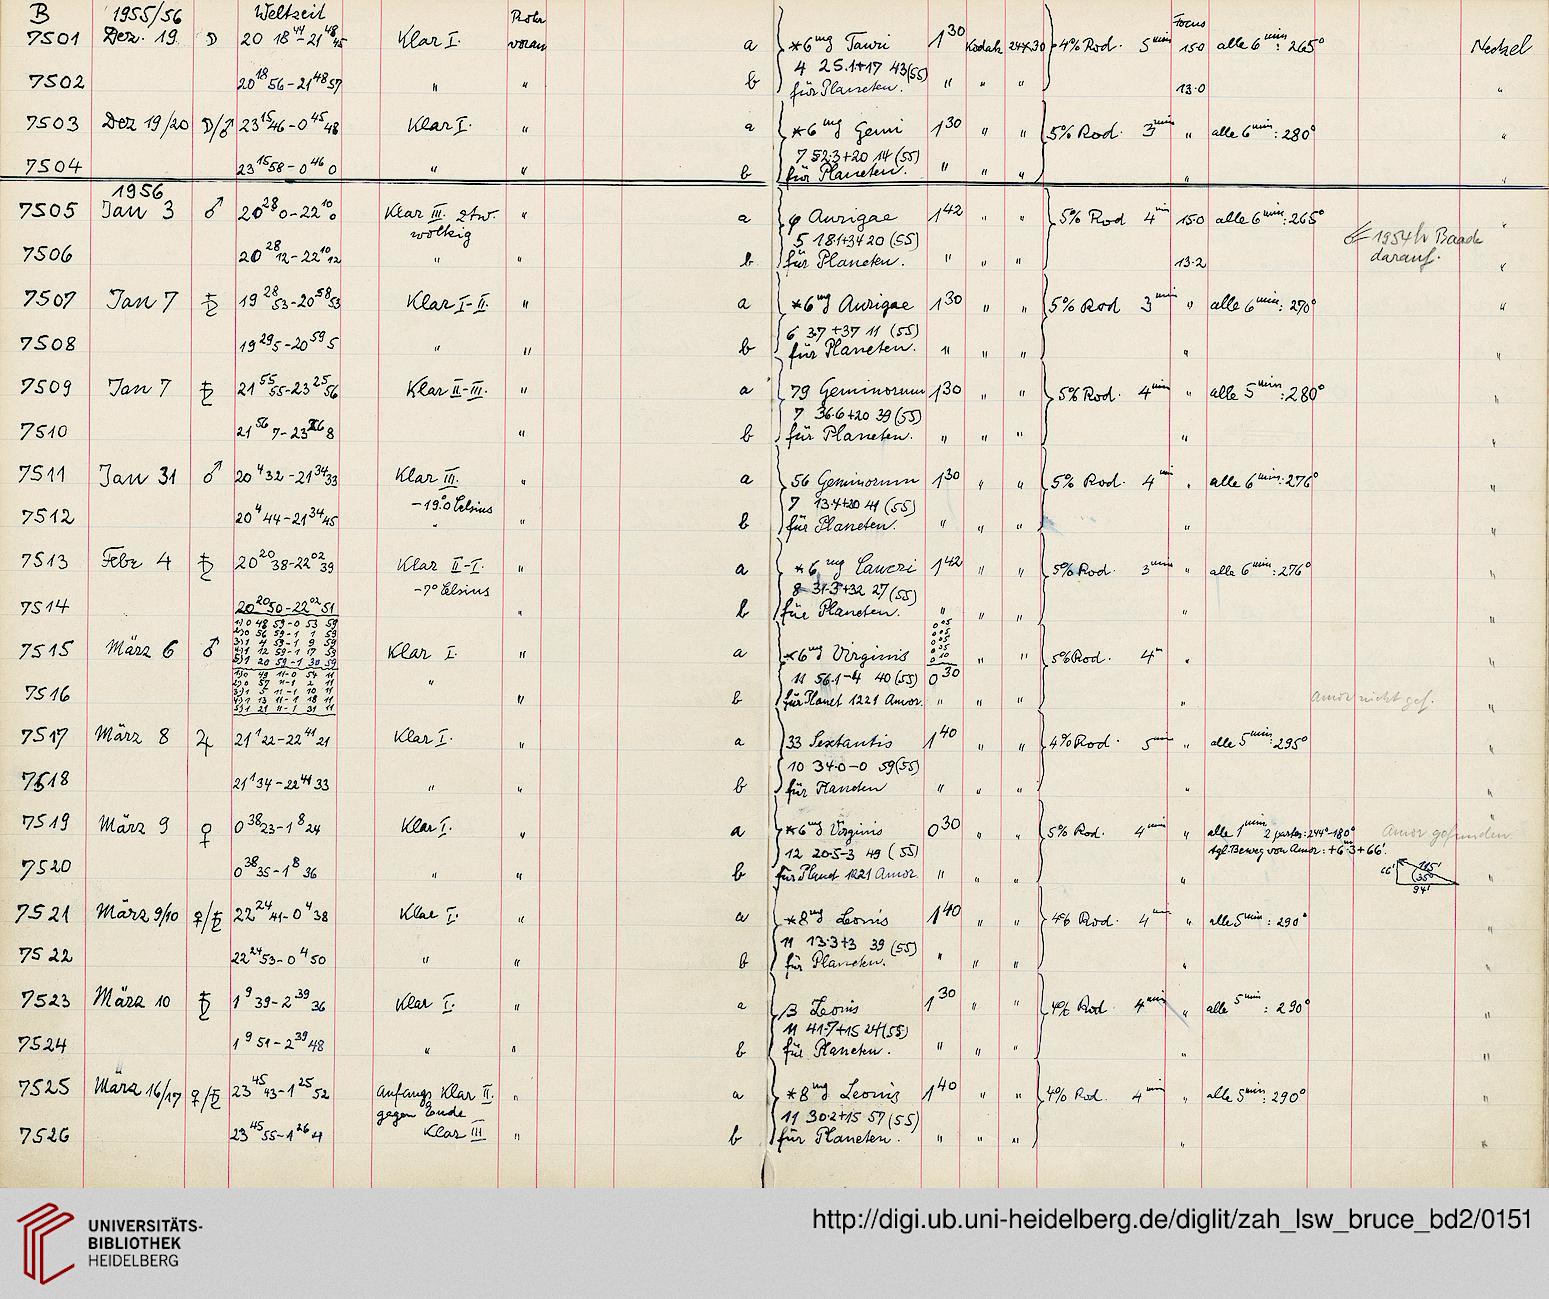 B 1955/56 Weltzeit Rohr Focus
7501 Dez. 19 ☽ 20 18 44 – 21 48 45 Klar I. voran a *6mg Tauri 1 30 Kodak 24×30 4% Rod. 5min 150 alle 6min: 265° Neckel
4 25.1+17 43(55)
7502 20 18 56 – 21 48 57 " " b für Planeten. " " " 13.0 "
7503 Dez 19/20 ☽/♂ 23 15 46 – 0 45 48 Klar I. " a *6mg Gemi 1 30 " " 5% Rod. 3min " alle 6min: 280° "
7 52.3+20 14 (55)
7504 23 15 58 – 0 46 0 " " b für Planeten. " " " " "
1956
7505 Jan 3 ♂ 20 28 0 – 22 10 0 Klar III. ztw. " a φ Aurigae 1 42 " " 5% Rod 4min 150 alle 6min: 265° "
wolkig 5 18.1+34 20 (55) 1954 h Baade
7506 20 28 12 – 22 10 12 " " b für Planeten. " " " 13.2 darauf. "
7507 Jan 7 ♄ 19 28 53 – 20 58 53 Klar I-II. " a *6mg Aurigae 1 30 " " 5% Rod 3min " alle 6min: 270° "
6 3.7+37 11 (55)
7508 19 29 5 – 20 59 5 " " b für Planeten. " " " " "
7509 Jan 7 ♄ 21 55 55 – 23 25 56 Klar II-III. " a 79 Geminorum 1 30 " " 5% Rod. 4min " alle 5min: 280° "
7 36.6+20 39 (55)
7510 21 56 7 – 23 26 8 " b für Planeten. " " " " "
7511 Jan 31 ♂ 20 4 32 – 21 34 33 Klar III. " a 56 Geminorum 1 30 " " 5% Rod. 4min " alle 6min: 276° "
–19°.0 Celsius 7 13.4+20 41 (55)
7512 20 4 44 – 21 34 45 " " b für Planeten. " " " "
7513 Febr 4 ♄ 20 20 38 – 22 02 39 Klar II-I. " a *6mg Cancri 1 42 " " 5% Rod. 3min " alle 6min: 276° "
–7° Celsius 8 31.3+32 27 (55)
7514 20 20 50 – 22 02 51 " b für Planeten. " " "
1) 0 48 59 – 0 53 59 0 05
2) 0 56 59 – 1 1 59 0 05
3) 1 4 59 – 1 9 59 0 05
4) 1 12 59 – 1 17 59 0 05
7515 März 6 ♂ 5) 1 20 59 – 1 30 59 Klar I. " a *6mg Virginis 0 10 " " 5% Rod. 4m " "
1) 0 49 11 – 0 54 11 11 56.1–4 40 (55) 0 30
2) 0 57 11 – 1 2 11 "
3) 1 5 11 – 1 10 11
7516 4) 1 13 11 – 1 18 11 " b für Planet 1221 Amor. " " " " Amor nicht gef. "
5) 1 21 11 – 1 31 11
7517 März 8 ♃ 21 1 22 – 22 41 21 Klar I. " a 33 Sextantis 1 40 " " 4% Rod. 5min " alle 5min: 295° "
10 34.0–0 59(55)
7518 21 1 34 – 22 41 33 " " b für Planeten " " " " "
7519 März 9 ♀ 0 38 23 – 1 8 24 Klar I. " a *6mg Virginis 0 30 " " 5% Rod. 4min " alle 1min 2 partes: 244°–180° Amor gefunden. "
12 20.5–3 49 (55) tgl. Beweg von Amor: +6m.3+66'.
7520 0 38 35 – 1 8 36 " " b für Planet 1221 Amor " " " " 66' 115' 35° 94' "
7521 März 9/10 ♀/♄ 22 24 41 – 0 4 38 Klar I. " a *8mg Leonis 1 40 " " 4% Rod. 4min " alle 5min: 290° "
11 13.3+3 39 (55)
7522 22 24 53 – 0 4 50 " " b für Planeten. " " " " "
7523 März 10 ♄ 1 9 39 – 2 39 36 Klar I. " a β Leonis 1 30 " " 4% Rod. 4min " alle 5min: 290° "
11 41.7+15 24(55)
7524 1 9 51 – 2 39 48 " " b für Planeten. " " " " "
7525 März 16/17 ♀/♄ 23 45 43 – 1 25 52 anfangs Klar II. " a *8mg Leonis 1 40 " " 4% Rod. 4min " alle 5min: 290° "
gegen Ende 11 30.2+15 57 (55)
7526 23 45 55 – 1 26 4 Klar III " b für Planeten. " " " " "
UNIVERSITÄTS-
BIBLIOTHEK
HEIDELBERG
http://digi.ub.uni-heidelberg.de/diglit/zah_lsw_bruce_bd2/0151